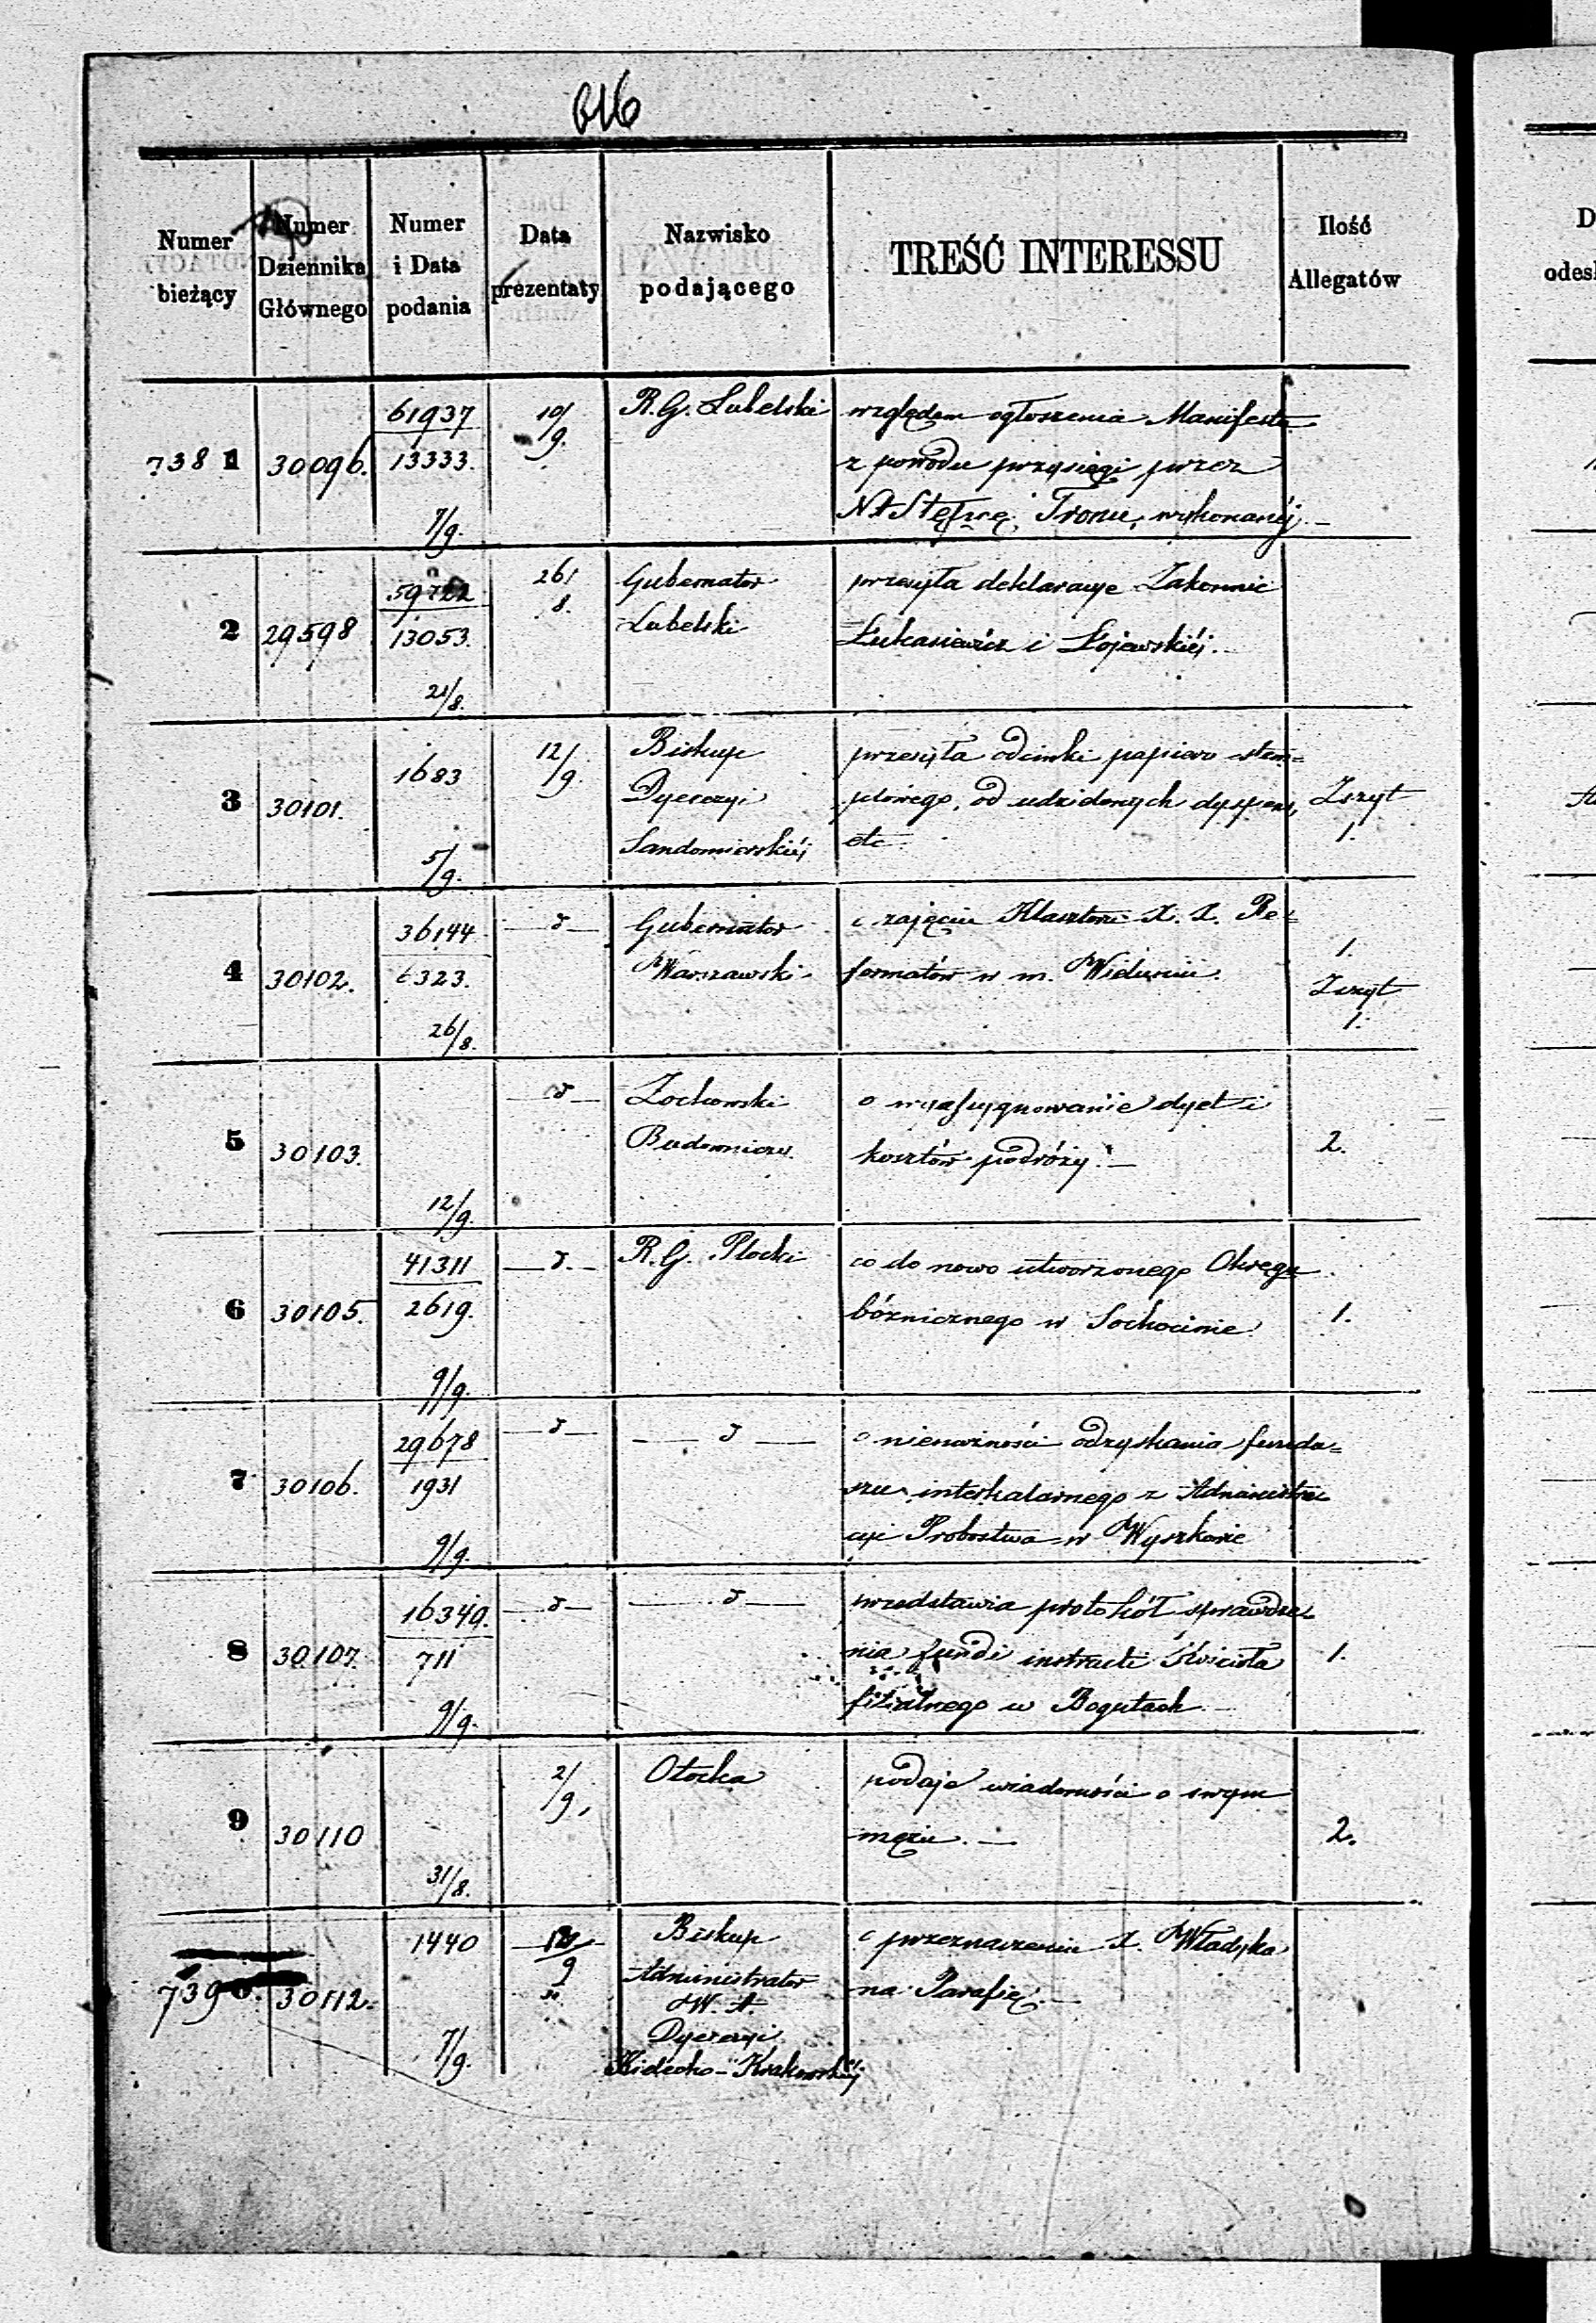 616
Numer bieżący
Numer Dziennika Głównego
Numer i Data podania
Data prezentaty
Nazwisko podającego
TREŚĆ INTERESSU
Ilość Allegatów
7381 30096. 61937 10/9. R. G. Lubelski względem ogłoszenia Manifestu
13333. z powodu przysięgi przez
7/9. NAStępcę Tronu, wykonanéj. —
2 29598 59722 26/8. Gubernator przesyła deklaracye Zakonnic
13053. Lubelski Łukasiewicz i Łojewskiéj. —
21/8.
3 30101. 1683 12/9. Biskup przesyła odcinki papieru stem=
Dyecezyi plowego, od udzielonych dyspens, Zszyt
5/9. Sandomierskiéj etc 1.
4 30102. 36144 — d — Gubernator o zajęciu Klasztoru X. X. Re=
6323. Warszawski formatów w m. 1.
26/8. Zszyt
1.
5 30103. — d — Żochowski o wyasygnowanie dyet i
Budowniczy kosztów podróży. — 2.
12/9.
6 30105. 41311 — d. — R. G. Płocki co do nowo utworzonego Okręgu
2619. bóżnicznego w Sochocinie 1.
9/9.
7 30106. 29678 — d — — d — o niemożności odzyskania fundu=
1931 szu interkalarnego z Administra
9/9. cyi Probostwa w Wyszkowie
8 30107. 16349. — d — — d — przedstawia protokół sprawdze
711 nia fundi instructi Kościoła 1.
9/9. filialnego w Bogutach —
9 30110 2/9, Otocka podaje wiadomości o swym
mężu. — 2.
31/8.
7390. 30112. 1440 Biskup o przeznaczeniu X. Władyka
9 Administrator na Parafię. —
W. A.
7/9. Dyecezyi
Kielecko-Krakowskiéj
D
odesł